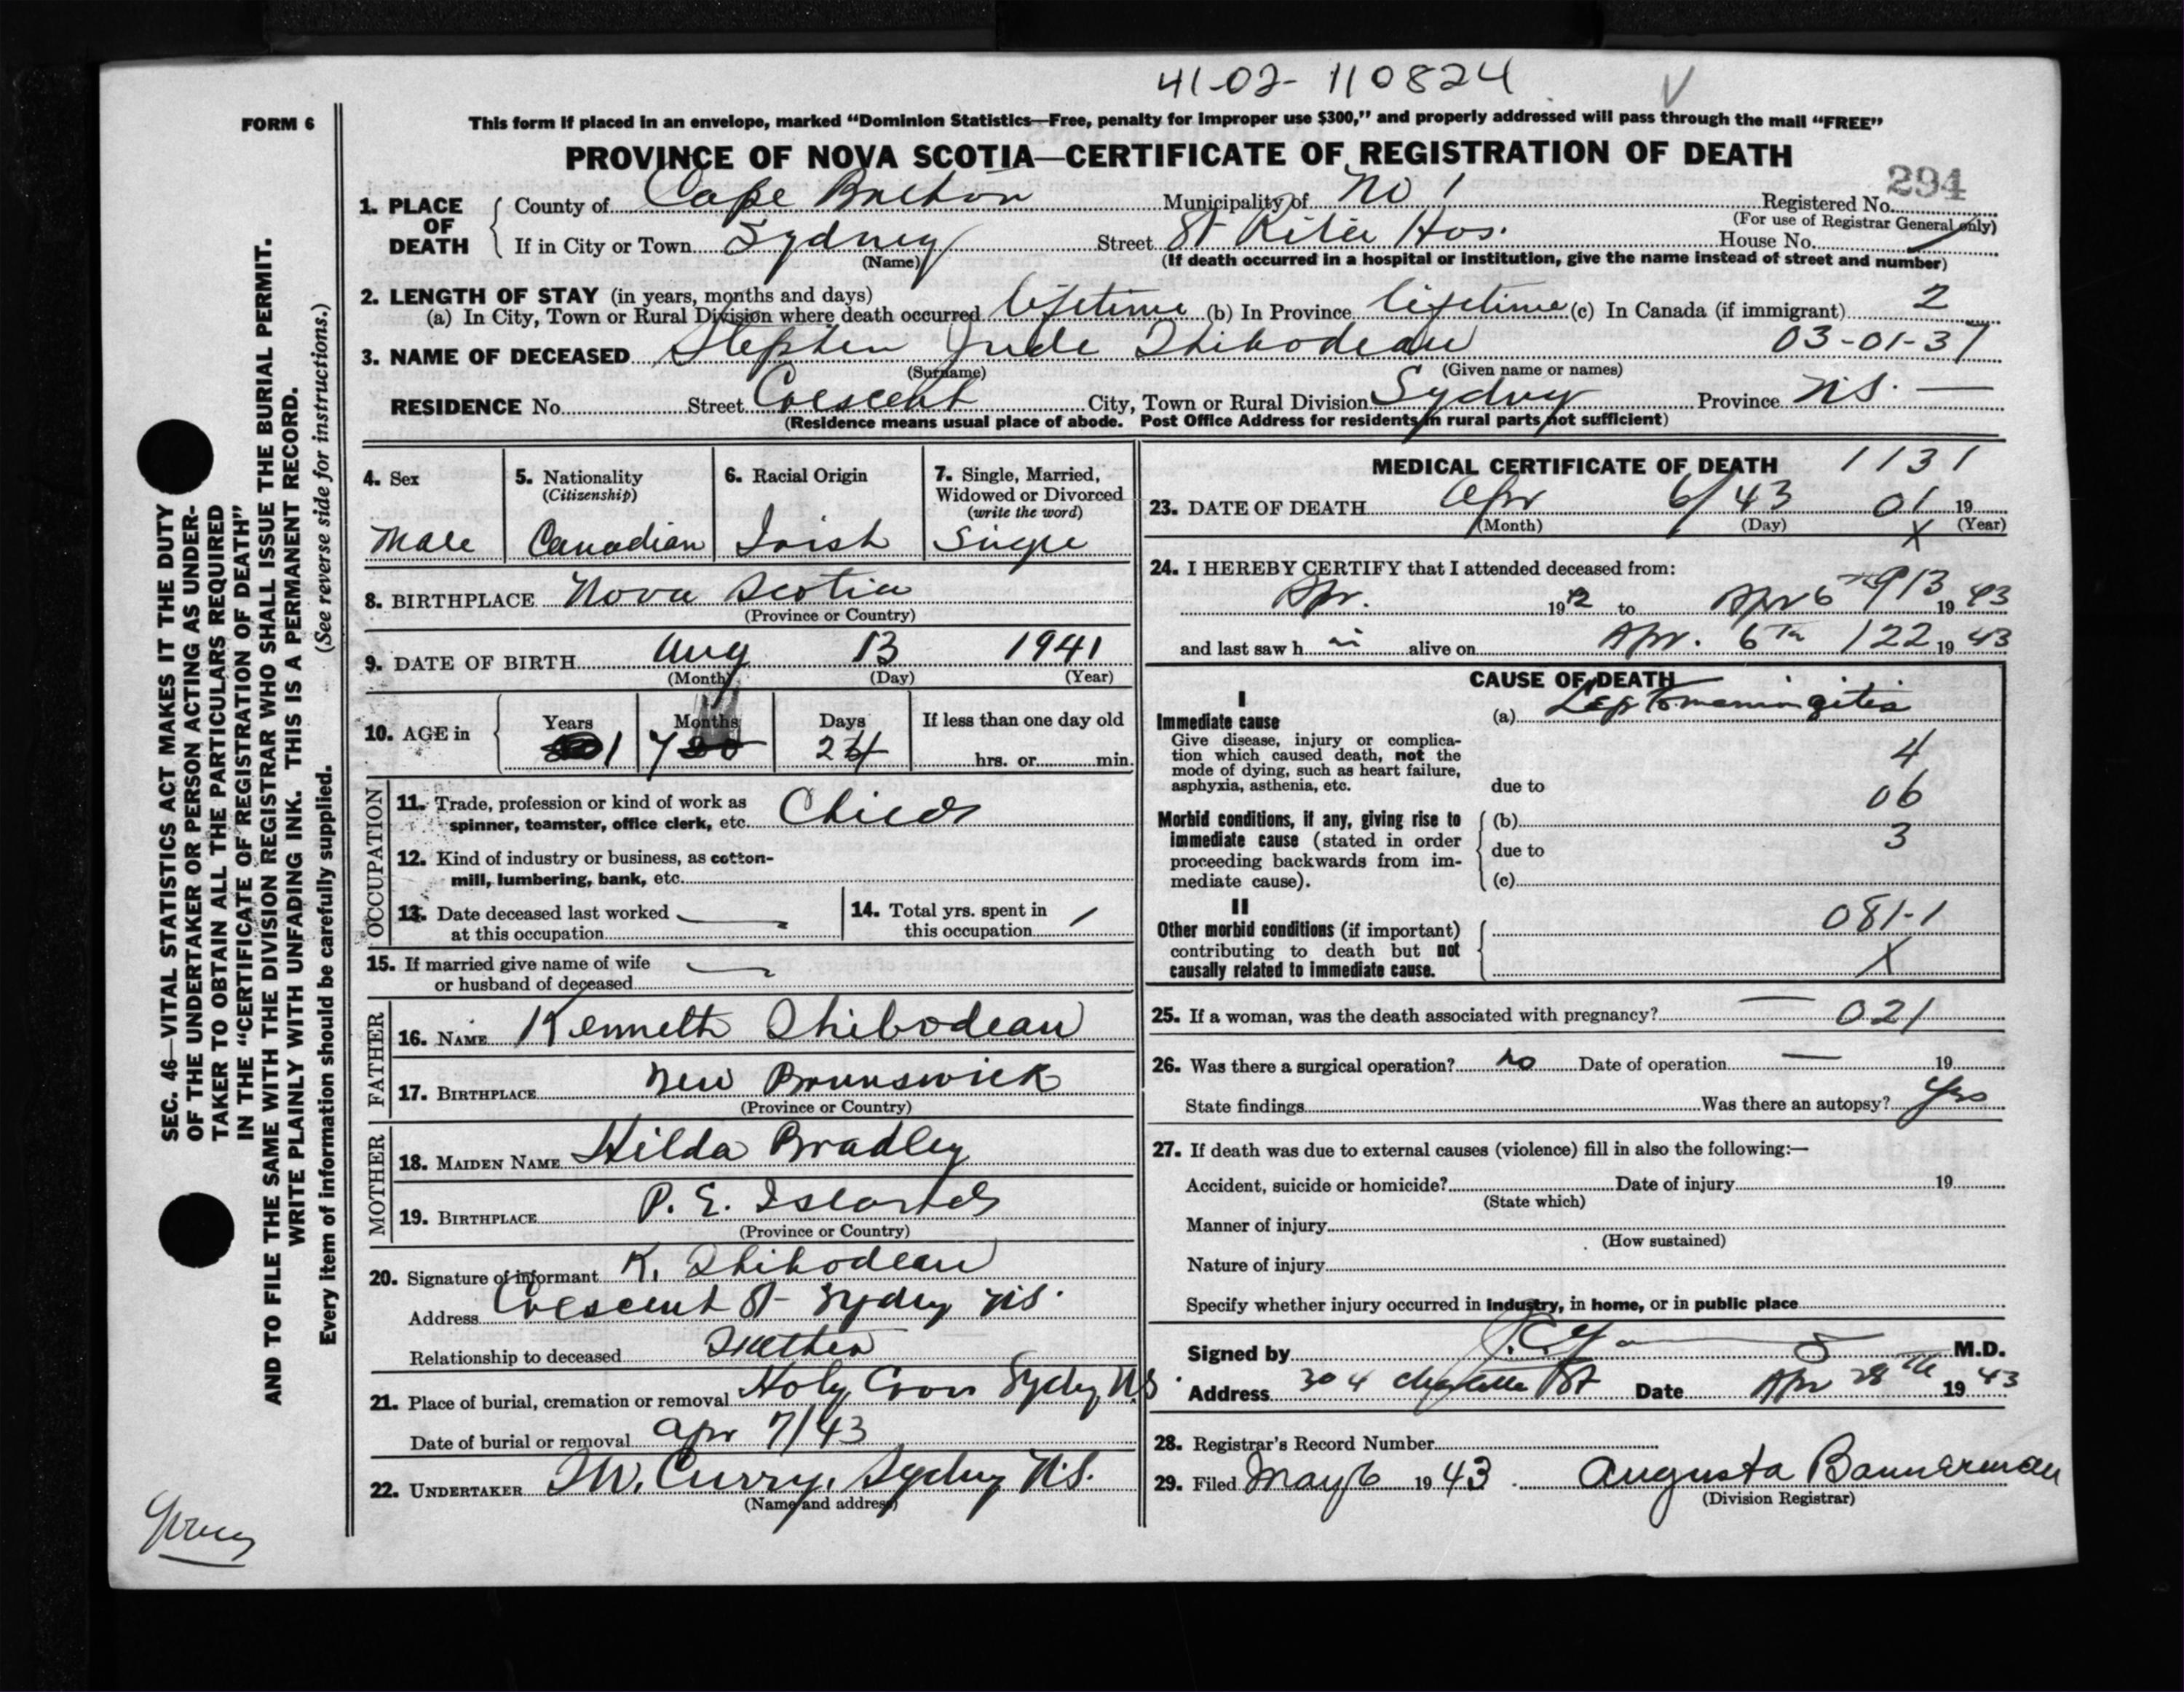 41-02-110824
FORM 6
This form if placed in an envelope, marked "Dominion Statistics—Free, penalty for improper use $300," and properly addressed will pass through the mail "FREE"
PROVINCE OF NOVA SCOTIA—CERTIFICATE OF REGISTRATION OF DEATH
294
1. PLACE OF DEATH
County of Cape Breton Municipality of No 1 Registered No.
(For use of Registrar General only)
If in City or Town Sydney Street St Rita Hos. House No.
(Name) (If death occurred in a hospital or institution, give the name instead of street and number)
2. LENGTH OF STAY (in years, months and days)
(a) In City, Town or Rural Division where death occurred lifetime (b) In Province lifetime (c) In Canada (if immigrant) 2
3. NAME OF DECEASED Stephen Jude Thibodeau 03-01-37
(Surname) (Given name or names)
RESIDENCE No. Street Crescent City, Town or Rural Division Sydney Province N.S. —
(Residence means usual place of abode. Post Office Address for residents in rural parts not sufficient)
4. Sex
Male
5. Nationality
(Citizenship)
Canadian
6. Racial Origin
Irish
7. Single, Married,
Widowed or Divorced
(write the word)
Single
8. BIRTHPLACE Nova Scotia
(Province or Country)
9. DATE OF BIRTH Aug 13 1941
(Month) (Day) (Year)
10. AGE in Years Months Days If less than one day old
1 7 24 hrs. or min.
OCCUPATION
11. Trade, profession or kind of work as
spinner, teamster, office clerk, etc. Child
12. Kind of industry or business, as cotton-
mill, lumbering, bank, etc.
13. Date deceased last worked
at this occupation
14. Total yrs. spent in
this occupation
15. If married give name of wife
or husband of deceased
FATHER
16. NAME Kenneth Thibodeau
17. BIRTHPLACE New Brunswick
(Province or Country)
MOTHER
18. MAIDEN NAME Hilda Bradley
19. BIRTHPLACE P. E. Island
(Province or Country)
20. Signature of informant K. Thibodeau
Address Crescent St Sydney N.S.
Relationship to deceased Father
21. Place of burial, cremation or removal Holy Cross Sydney N.S.
Date of burial or removal Apr 7/43
22. UNDERTAKER T.W. Curry, Sydney N.S.
(Name and address)
MEDICAL CERTIFICATE OF DEATH 1131
23. DATE OF DEATH Apr 6/43 01 19
(Month) (Day) X (Year)
24. I HEREBY CERTIFY that I attended deceased from:
Apr. 19 42 to Apr 6 913 19 43
and last saw h im alive on Apr. 6th 122 19 43
CAUSE OF DEATH
I
Immediate cause
(a) Leptomeningitis
Give disease, injury or complica-
tion which caused death, not the
mode of dying, such as heart failure,
asphyxia, asthenia, etc.
4
due to 06
Morbid conditions, if any, giving rise to
immediate cause (stated in order
proceeding backwards from im-
mediate cause).
(b)
due to 3
(c)
II
Other morbid conditions (if important)
contributing to death but not
causally related to immediate cause.
081-1
X
25. If a woman, was the death associated with pregnancy? — 021
26. Was there a surgical operation? no Date of operation — 19
State findings Was there an autopsy? Yes
27. If death was due to external causes (violence) fill in also the following:—
Accident, suicide or homicide? Date of injury 19
(State which)
Manner of injury
(How sustained)
Nature of injury
Specify whether injury occurred in industry, in home, or in public place
Signed by M.D.
Address 304 Charlotte St Date Apr 28th 19 43
28. Registrar's Record Number
29. Filed May 6 19 43. Augusta Bannerman
(Division Registrar)
SEC. 46—VITAL STATISTICS ACT MAKES IT THE DUTY
OF THE UNDERTAKER OR PERSON ACTING AS UNDER-
TAKER TO OBTAIN ALL THE PARTICULARS REQUIRED
IN THE "CERTIFICATE OF REGISTRATION OF DEATH"
AND TO FILE THE SAME WITH THE DIVISION REGISTRAR WHO SHALL ISSUE THE BURIAL PERMIT.
WRITE PLAINLY WITH UNFADING INK. THIS IS A PERMANENT RECORD.
Every item of information should be carefully supplied. (See reverse side for instructions.)